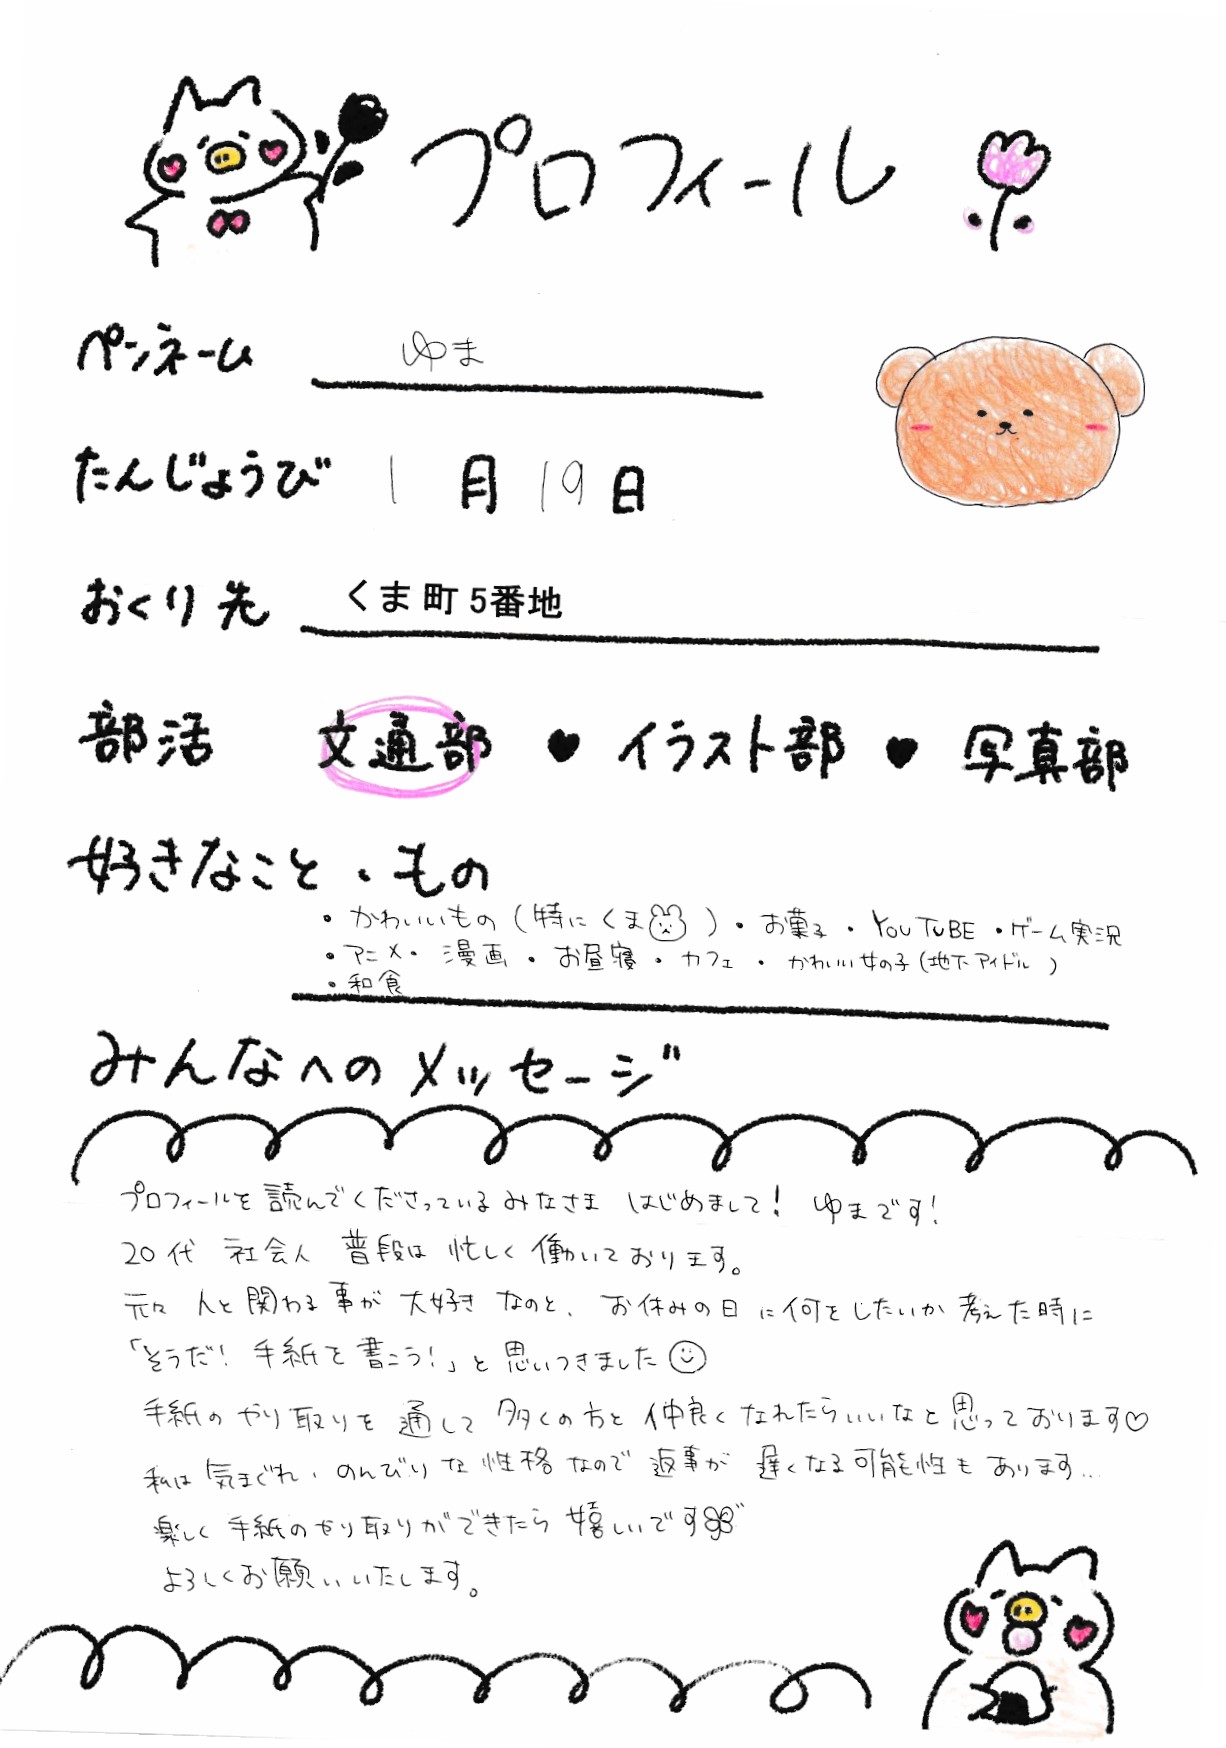 プロフィール
ペンネーム ゆま
たんじょうび 1月19日
おくり先 くま町5番地
部活 文通部 ♥ イラスト部 ♥ 写真部
好きなこと・もの
・かわいいもの(特にくま)・お菓子・YOUTUBE・ゲーム実況
・アニメ・漫画・お昼寝・カフェ・かわいい女の子(地下アイドル)
・和食
みんなへのメッセージ
プロフィールを読んでくださっているみなさま はじめまして! ゆまです!
20代 社会人 普段は忙しく働いております。
元々人と関わる事が大好きなのと、お休みの日に何をしたいか考えた時に
「そうだ!手紙を書こう!」と思いつきました☺
手紙のやり取りを通して多くの方と仲良くなれたらいいなと思っております♡
私は気まぐれ、のんびりな性格なので返事が遅くなる可能性もあります…
楽しく手紙のやり取りができたら嬉しいです
よろしくお願いいたします。